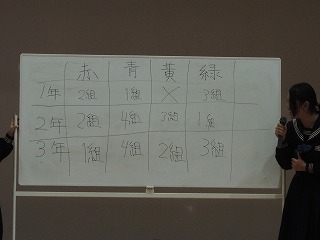 赤 青 黄 緑
1年 2組 1組 × 3組
2年 2組 4組 3組 1組
3年 1組 4組 2組 3組